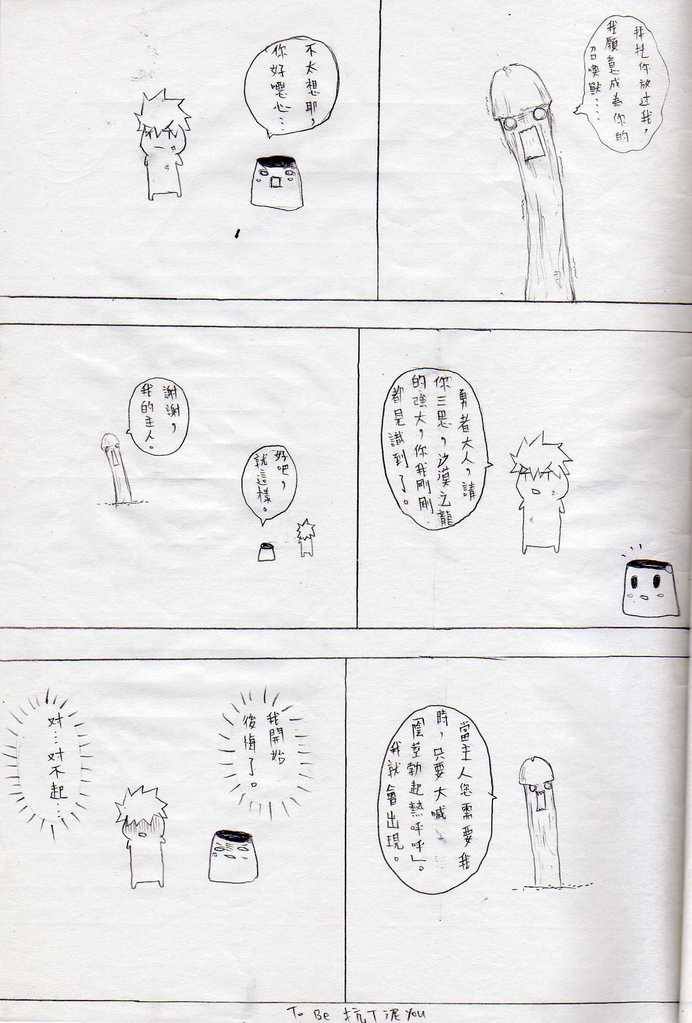 拜託你放过我，
我願意成為你的
召喚獸……
不太想耶，
你好噁心…
勇者大人，請
你三思，沙漠之龍
的強大，你我剛剛
都見識到了。
好吧，
就這樣。
謝謝，
我的主人。
當主人您需要我
時，只要大喊
「陰莖勃起熱呼呼」。
我就會出現。
我開始
後悔了。
对…对不起…
To Be 坑下泥 You